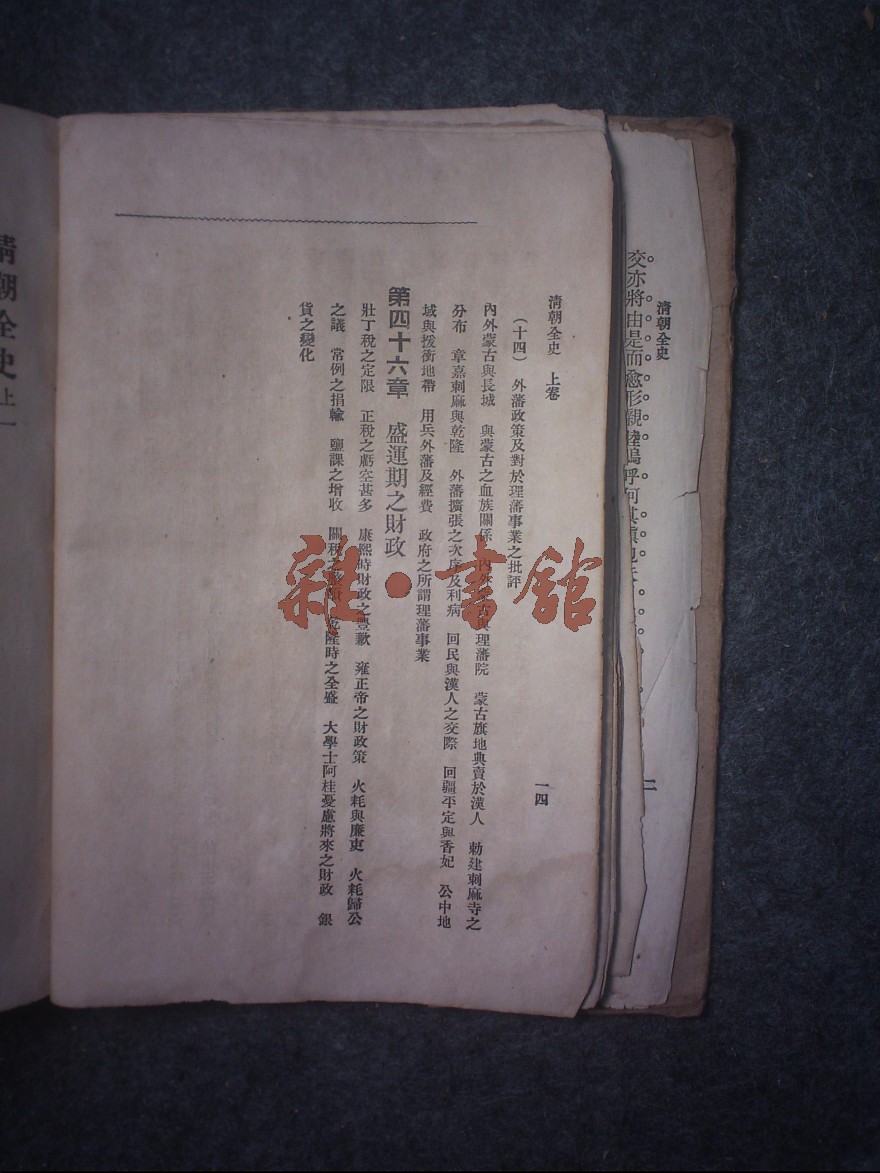 清朝全史
二
交亦將由是而愈形親睦嗚呼何其
清朝全史 上卷
一四
(十四) 外藩政策及對於理藩事業之批評
內外蒙古與長城 與蒙古之血族關係 內外蒙古與理藩院 蒙古旗地典賣於漢人 勅建刺麻寺之
分布 章嘉刺麻與乾隆 外藩擴張之次序及利病 回民與漢人之交際 回疆平定與香妃 公中地
域與援衝地帶 用兵外藩及經費 政府之所謂理藩事業
第四十六章 盛運期之財政
壯丁稅之定限 正稅之虧空甚多 康熙時財政之豐歉 雍正帝之財政策 火耗與廉吏 火耗歸公
之議 常例之捐輸 鹽課之增收 關稅之 乾隆時之全盛 大學士阿桂憂慮將來之財政 銀
貨之變化
清朝全史上一
雜·書館